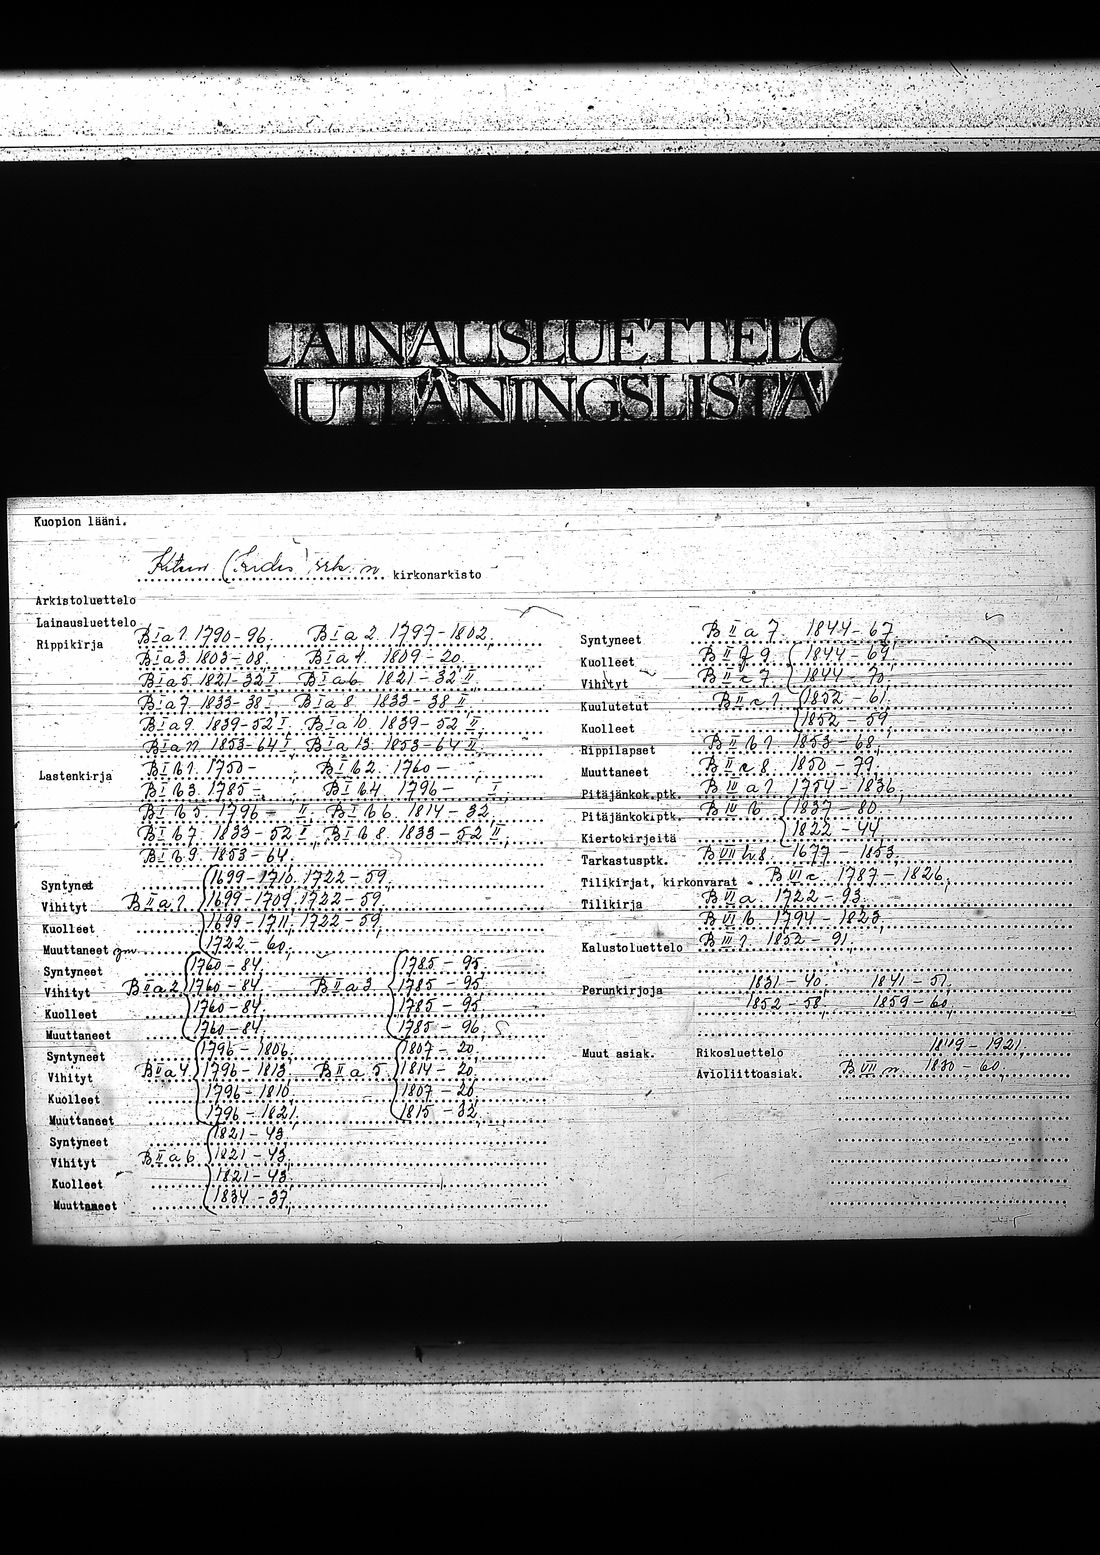 LAINAUSLUETTELO
UTLÅNINGSLISTA
Kuopion lääni.
srk:n kirkonarkisto
Arkistoluettelo
Lainausluettelo
Rippikirja B I a 1. 1790-96. B I a 2. 1797-1802.
B I a 3. 1803-08. B I a 4. 1809-20.
B I a 5. 1821-32 I B I a 6. 1821-32 II.
B I a 7. 1833-38 I B I a 8. 1833-38 II
B I a 9. 1839-52 I. B I a 10. 1839-52 II.
1853-64 I, B I a 13. 1853-64 II.
Lastenkirja B I b 1. 1750- B I b 2. 1760-
B I b 3. 1785- B I b 4. 1796- I
B I b 5. 1796- II B I b 6. 1814-32,
B I b 7. 1833-52 I, B I b 8. 1833-52 II,
B I b 9. 1853-64.
Syntyneet 1699-1710. 1722-59,
Vihityt B II a 1. 1699-1709. 1722-59,
Kuolleet 1699-1711, 1722-59,
Muuttaneet ym. 1722-60,
Syntyneet 1760-84, 1785-95,
Vihityt B II a 2 1760-84, B II a 3 1785-95,
Kuolleet 1760-84, 1785-95,
Muuttaneet 1760-84, 1785-96,
Syntyneet 1796-1806, 1807-20,
Vihityt B II a 4. 1796-1813. B II a 5. 1814-20,
Kuolleet 1796-1810, 1807-20,
Muuttaneet 1796-1821, 1815-32,
Syntyneet 1821-43,
Vihityt B II a 6. 1821-43,
Kuolleet 1821-43,
Muuttaneet 1834-37,
Syntyneet B II a 7. 1844-67,
Kuolleet 1844-
Vihityt 1844-
Kuulutetut 1852-61,
Kuolleet 1852-59,
Rippilapset B II b 1. 1853-68,
Muuttaneet 1850-79,
Pitäjänkok.ptk. B IV a 1. 1754-1836,
Pitäjänkok.ptk. B IV b. 1837-80,
Kiertokirjeitä 1822-44,
Tarkastusptk. 1677-1853,
Tilikirjat, kirkonvarat B VI c. 1787-1826,
Tilikirja B VI a 1722-93.
B VI b. 1794-1823,
Kalustoluettelo B III 1. 1852-91,
Perunkirjoja 1831-40, 1841-51,
1852-58, 1859-60,
Muut asiak. Rikosluettelo 1849-1921,
Avioliittoasiak. B VII n. 1830-60,